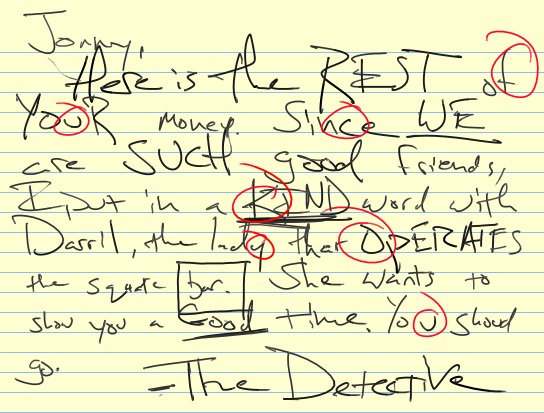 Jonny,
Here is the REST of
YOUR money. Since WE
are SUCH good friends,
I put in a KIND word with
Darril, the lady that OPERATES
the square bar. She wants to
show you a Good time. You shoud
go.
-The Detective